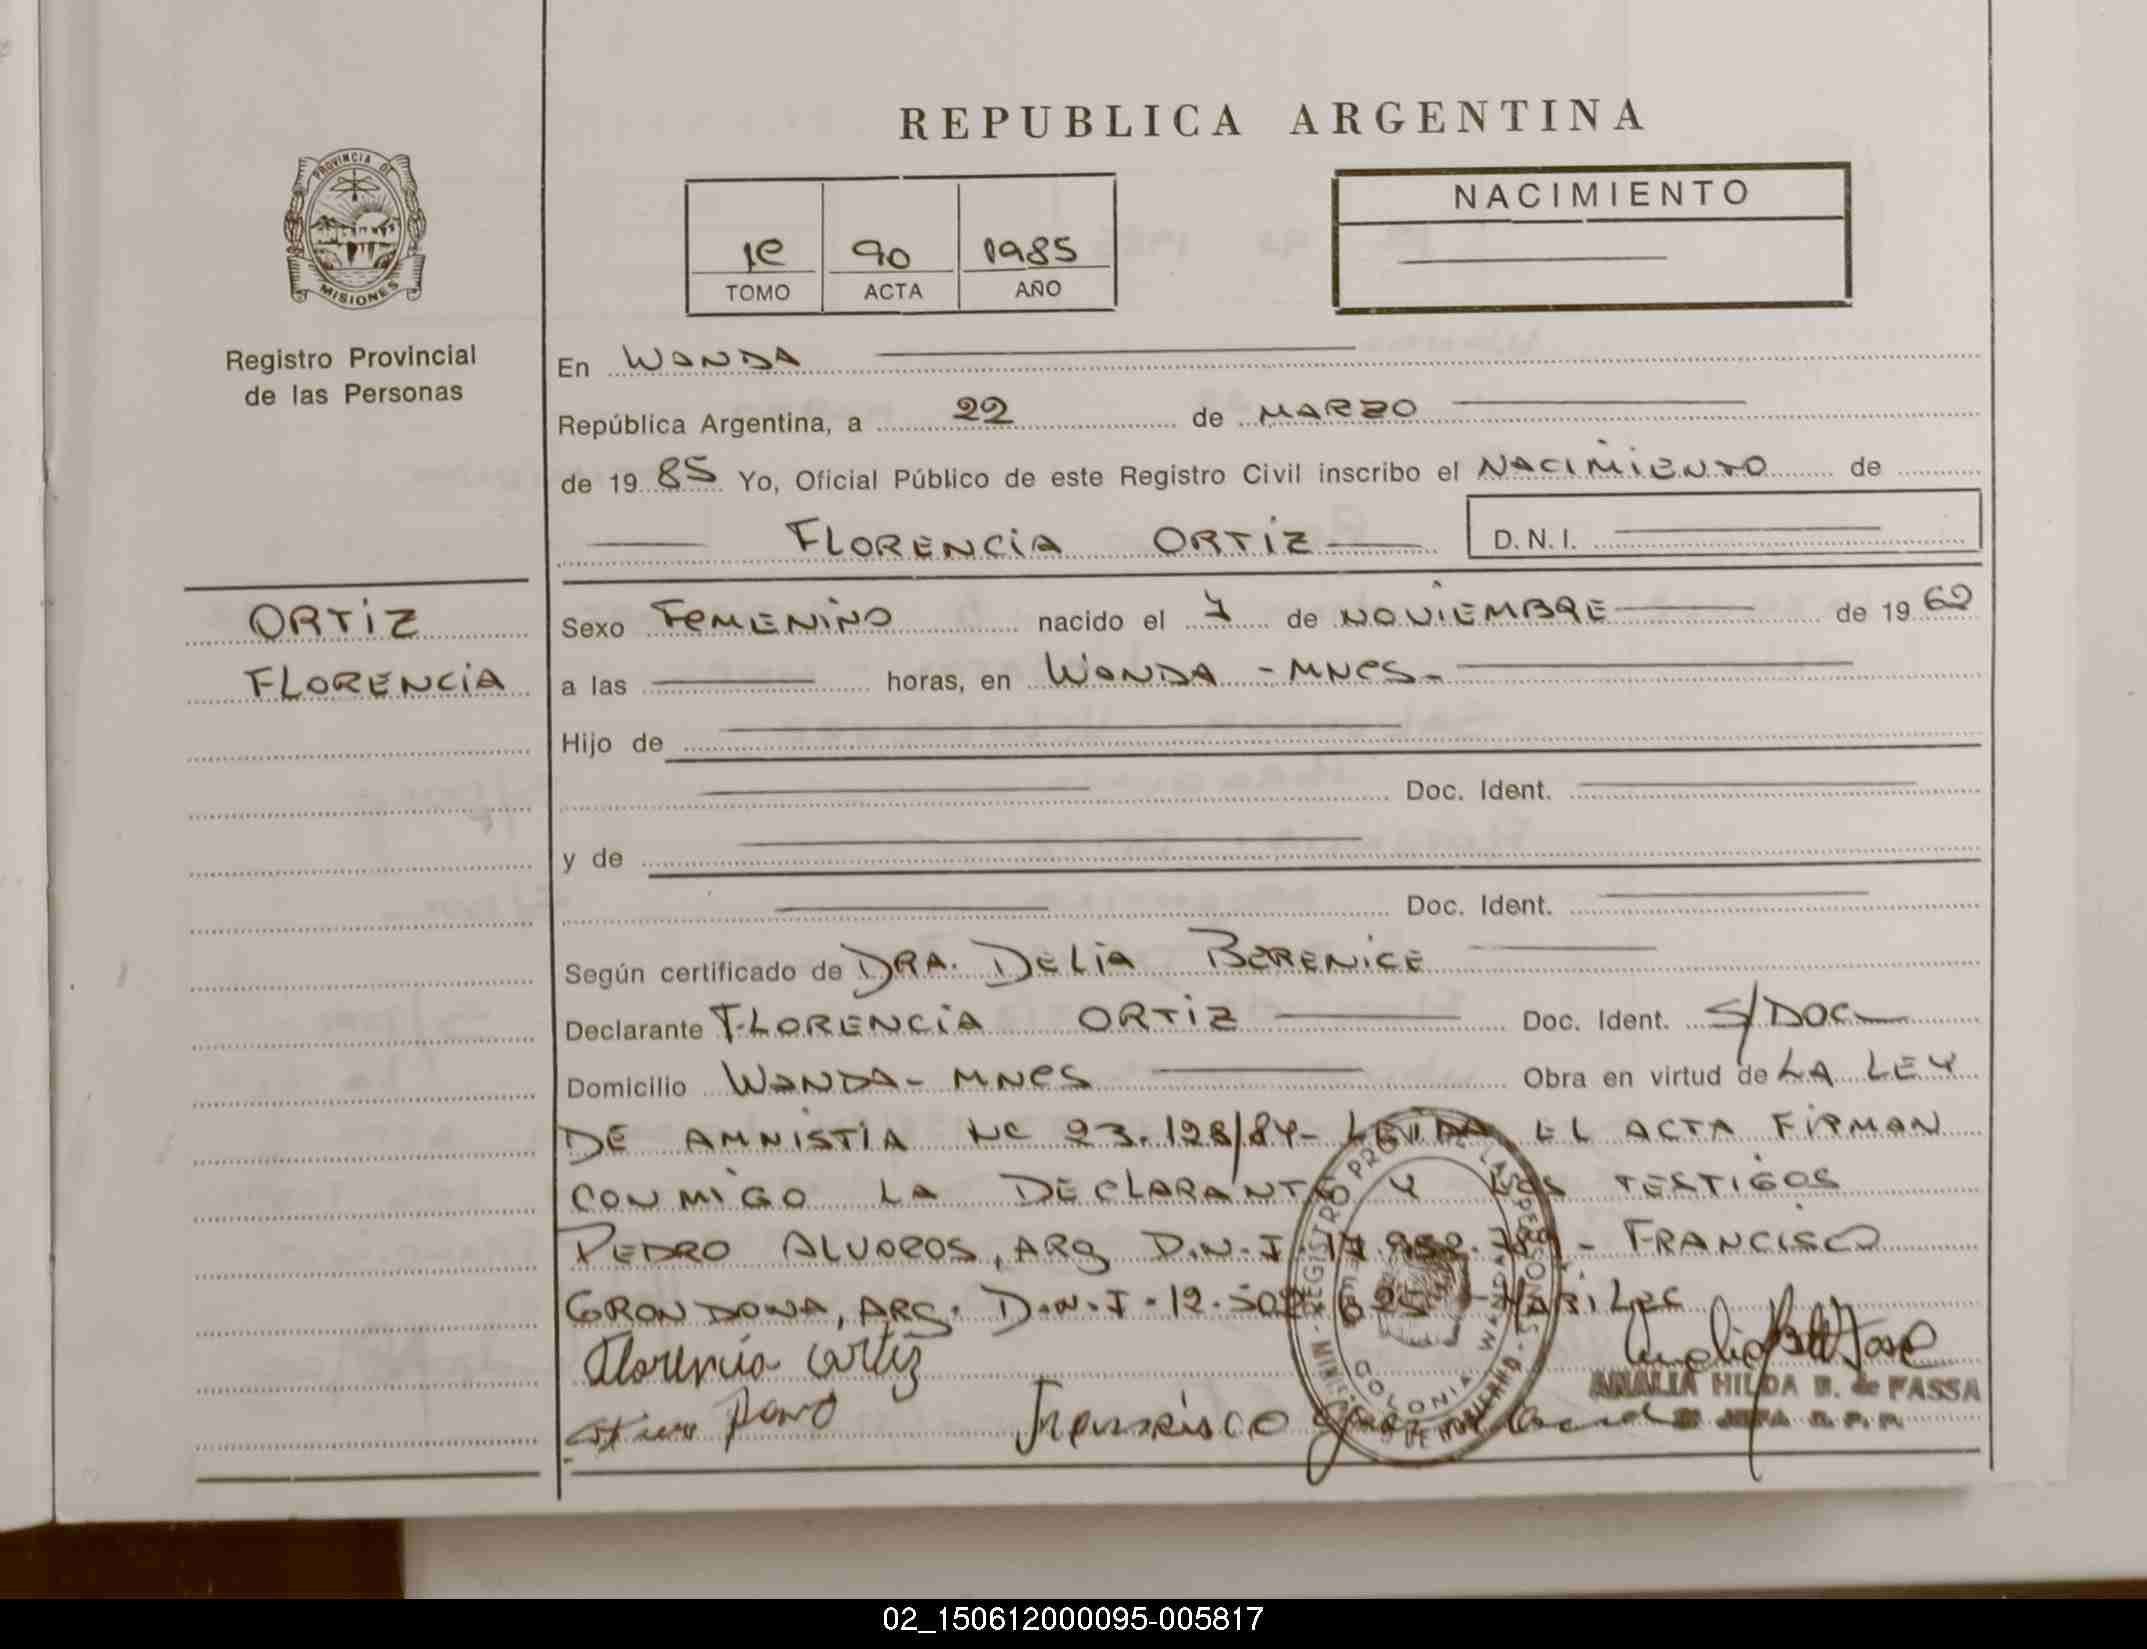 REPUBLICA ARGENTINA
PROVINCIA DE MISIONES
Registro Provincial
de las Personas
1º 90 1985
TOMO ACTA AÑO
NACIMIENTO
En WANDA
República Argentina, a 22 de MARZO
de 1985 Yo, Oficial Público de este Registro Civil inscribo el NACIMIENTO de
FLORENCIA ORTIZ D.N.I.
ORTIZ
FLORENCIA
Sexo FEMENINO nacido el 7 de NOVIEMBRE de 1962
a las horas, en WANDA - MNES-
Hijo de
Doc. Ident.
y de
Doc. Ident.
Según certificado de DRA. DELIA BERENICE
Declarante FLORENCIA ORTIZ Doc. Ident. S/DOC
Domicilio WANDA- MNES Obra en virtud de LA LEY
DE AMNISTIA Nº 23.128/84- LEIDA EL ACTA FIRMAN
CONMIGO LA DECLARANTE Y LOS TESTIGOS
PEDRO ARG D.N.I. - FRANCISCO
GRONDONA, ARG. D.N.I. 12.
Florencia Ortiz
Francisco
ANALIA HILDA B. de FASSA
JEFA R. P. P.
COLONIA WANDA
02_150612000095-005817